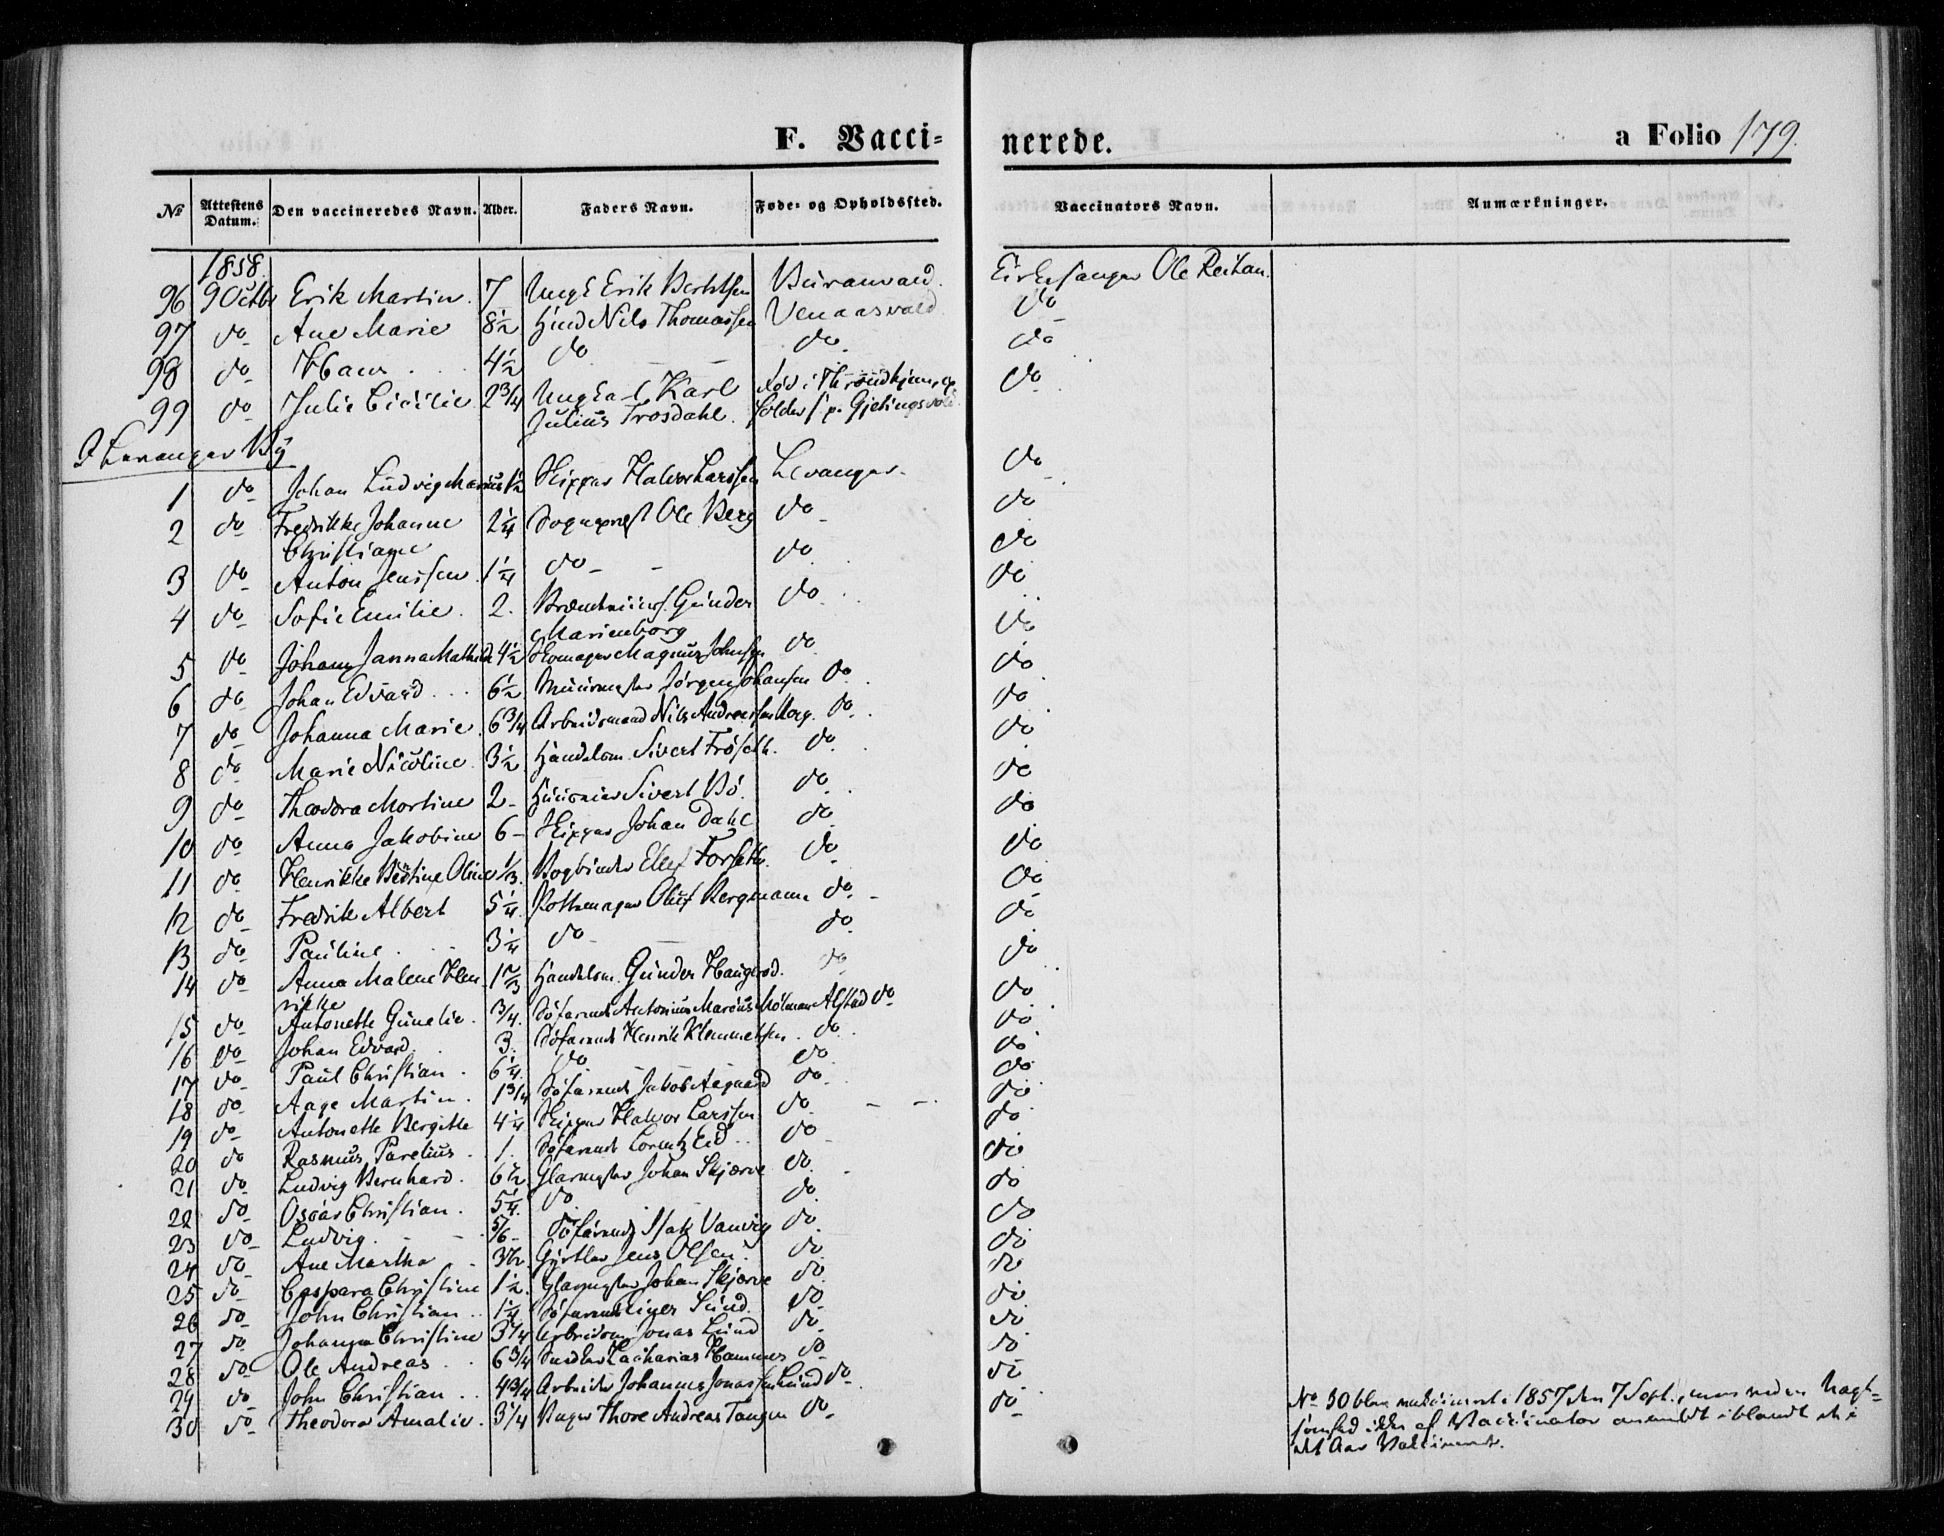 F. Vacci=
nerede.
a Folio 179.
No Attestens Datum. Den vaccineredes Navn. Alder. Faders Navn. Føde- og Opholdssted. Vaccinators Navn. Anmærkninger.
1858.
96 9 Octbr Erik Martin. 7 Ungk Erik Berntsen Kirkesanger Ole Reitan.
97 do Ane Marie 8½ Husmd Nils Thomassen Venaasvald do
98 do Hans 4½ do do do
99 do Julie Cicilie 2¾ Ungkarl Karl fød i Throndhjem, op. do
Julius Trosdahl. Gjetingsvold.
I Levanger By
1 do Johan Ludvig Marius 1½ Skipper Halvor Larssen Levanger. do
2 do Fredrikke Johanne 2¼ Sognepræst Ole Berg do do
Christiane
3 do Anton Jenssen 1¼ do do do
4 do Sofie Emilie. 2. Gunder do do
Marienborg
5 do Johany Janna Mathilde 4½ Skomager Magnus Johnsen do do
6 do Johan Edvard 6½ Muurmester Jørgen Johansen do do
7 do Johanna Marie 6¾ Arbeidsmand Nils Andreassen Berg. do do
8 do Marie Nicoline 3½ Handelsm. Sivert Frøseth. do do
9 do Theodora Mortine 2 Huuseier Sivert Bø. do do
10 do Anna Jakobine 6 Skipper Johan Dahl do do
11 do Henrikke Bertine Oline ⅓. Bogbinder Ellef Forseth. do do
12 do Fredrik Albert 5¼. Pottemager Oluf Bergmann do do
13 do Pauline 3¼ do do do
14 do Anna Malene Hen 1⅔ Handelsm. Gunder Haugerød. do do
rikke
15 do Antonette Gunelie. ¾. Søfarende Antonius Marcus Molman Alstad do do
16 do Johan Edvard. 3. Søfarende Henrik Klemmetsen. do do
17 do Paul Christian. 6¼. do do do
18 do Aage Martin. 1¾ Søfarende Jakob Aagaard do do
19 do Antonette Bergitte 4¼ Skipper Halvor Larssen do do
20 do Rasmus Parelius 1. Søfarende Lorentz Eid do do
21 do Ludvig Bernhard. 6½ Glarmester Johan Skjærve do do
22 do Oscar Christian. 5¼. do do do
23 do Ludvig. 5/6 Søfarende Isak Vanvig do do
24 do Ane Martha 3½. Gjørtler Jens Olsen. do do
25 do Caspara Christine 1½. Glarmester Johan Skjærve do do
26 do John Christian 1¼ Søfarende Einer Sund. do do
27 do Johanna Christine 3¼ Arbeidsm Jonas Lund do do
28 do Ole Andreas 6¾ Zacharias Hammer do do
29 do John Christian 4¾ Arbeider Johannes Jonassen Lund do do
30 do Theodora Amalie. 3¼ Bager Thore Andreas Tangen do do
No 30 blev vaccineret i 1857 den 7 Sept., men ved en Uagt=
somhed ikke af Vaccinator anmeldt iblandt de i
det Aar Vaccinerede.